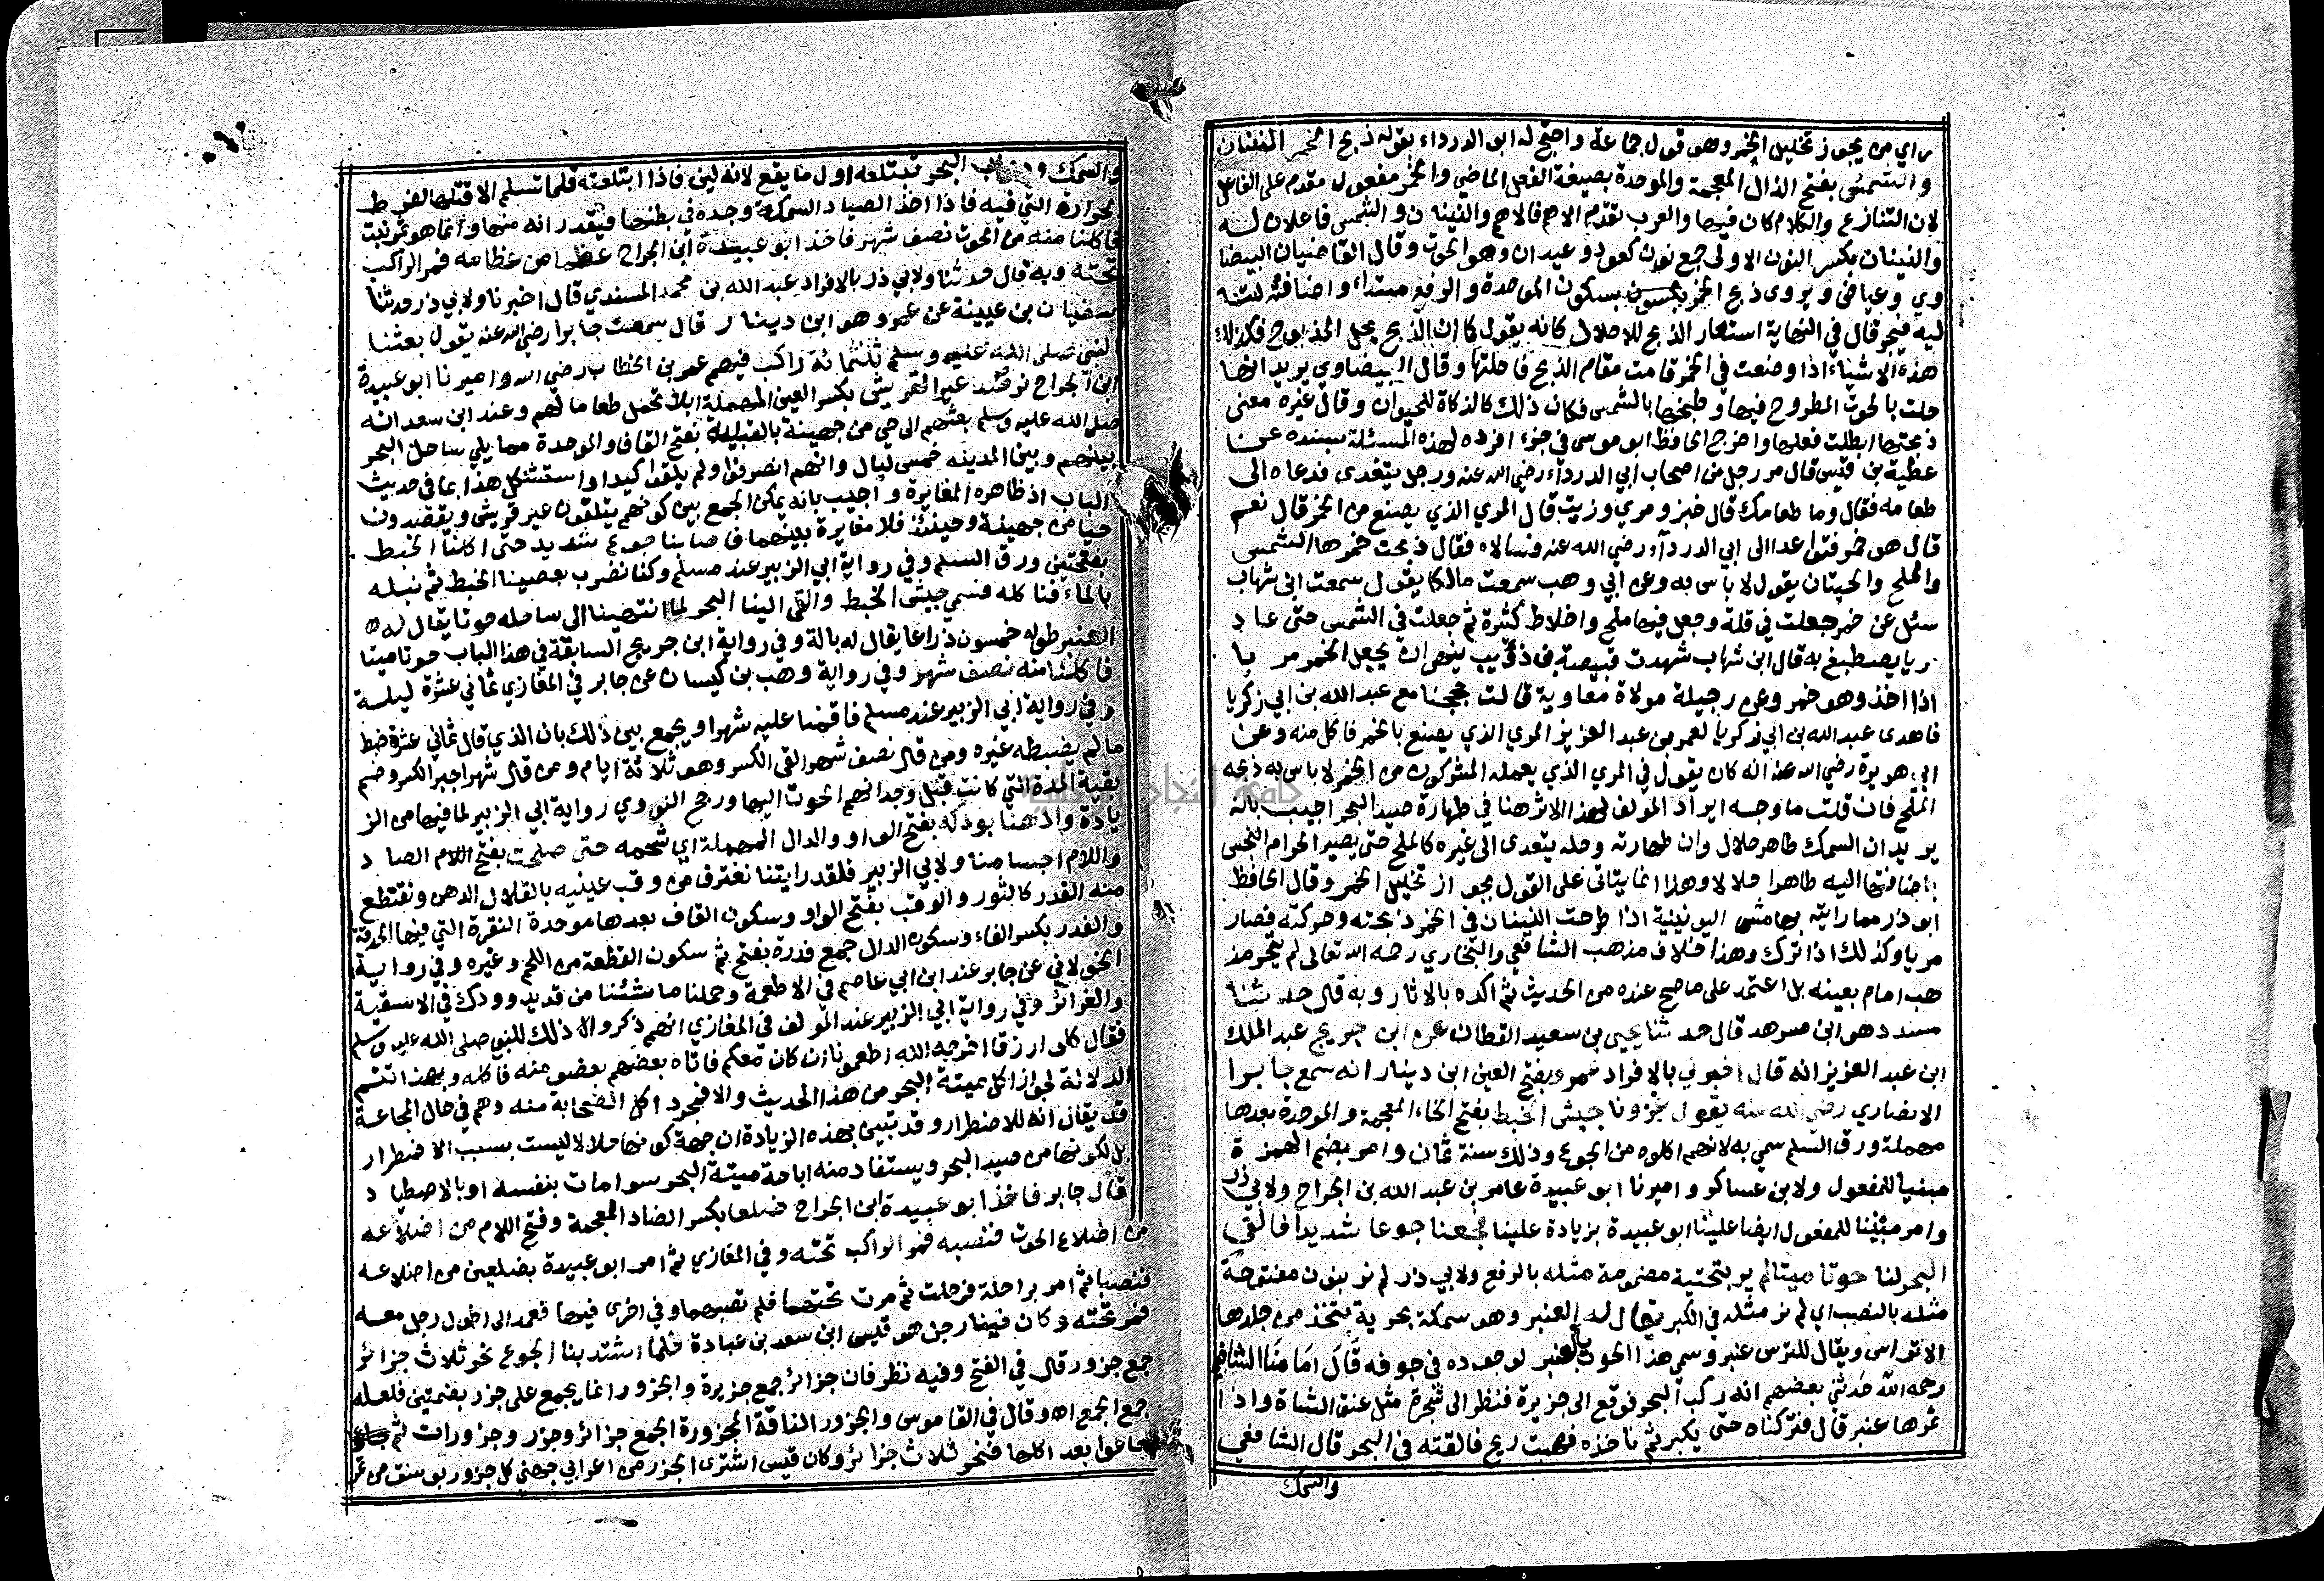 راي من يجوز تخليل الخمر وهو قول جماعة واحتج له ابو الدرداء بقوله ذبح الخمر النينان
والشمس بفتح الذال المعجمة والموحدة بصيغة الفعل الماضي والخمر مفعول مقدم على الفاعل
لان التنازع والكلام كان فيها والعرب تقدم الاهم فالاهم والنينان والشمس فاعلان له
والنينان بكسر النون الاولى جمع نون كعود وعيدان وهو الحوت وقال القاضيان البيضا
وي وعياض ويروى ذبح الخمر بسكون الموحدة والرفع مبتداء واضافته لتا
ليه فيجر قال في النهاية استعار الذبح للاحلال كانه يقول كما ان الذبح يحل المذبوح فكذلك
هذه الاشياء اذا وضعت في الخمر قامت مقام الذبح فاحلتها وقال البيضاوي يريد انها
حلت بالحوت المطروح فيها وطبخها بالشمس فكان ذلك كالذكاة للحيوان وقال غيره معنى
ذبحتها ابطلت فعلها واخرج الحافظ ابو موسى في جزء افرده لهذه المسئلة بسنده عن
عطية بن قيس قال مر رجل من اصحاب ابي الدرداء رضي الله عنه ورجل يتغدى فدعاه الى
طعامه فقال وما طعامك قال خبز ومري وزيت قال المري الذي يصنع من الخمر قال نعم
قال هو خمر فتواعدا الى ابي الدرداء رضي الله عنه فسالاه فقال ذبحت خمرها الشمس
والملح والحيتان يقول لا باس به وعن ابي وهب سمعت مالكا يقول سمعت ابن شهاب
سئل عن خمر جعلت في قلة وجعل فيها ملح واخلاط كثيرة ثم جعلت في الشمس حتى عاد
مريا يصطبغ به قال ابن شهاب شهدت قبيصة بن ذؤيب ينهى ان يجعل الخمر مريا
اذا اخذ وهو خمر وعن رجيلة مولاة معاوية قالت حججنا مع عبد الله بن ابي زكريا
فاهدى عبد الله بن ابي زكريا لعمر بن عبد العزيز المري الذي يصنع بالخمر فاكل منه وعن
ابي هريرة رضي الله عنه انه كان يقول في المري الذي يعمله المشركون من الخمر لا باس به ذبحه
الملح فان قلت ما وجه ايراد المولف لهذا الاثر هنا في طهارة صيد البحر اجيب بانه
يريد ان السمك طاهر حلال وان طهارته وحله يتعدى الى غيره كالملح حتى يصير الحرام النجس
باضافتها اليه طاهرا حلالا وهذا انما يتاتى على القول بجواز تخليل الخمر وقال الحافظ
ابو ذر مما رايته بهامش اليونينية اذا طرحت النينان في الخمر ذبحته وحركته فصار
مريا وكذلك اذا ترك وهذا خلاف مذهب الشافعي والبخاري رحمه الله تعالى لم يتحر مذ
هب امام بعينه بل اعتمد على ما صح عنده من الحديث ثم اكده بالاثار وبه قال حدثنا
مسدد هو ابن مسرهد قال حدثنا يحيى بن سعيد القطان عن ابن جريج عبد الملك
ابن عبد العزيز انه قال اخبرني بالافراد عمرو بفتح العين ابن دينار انه سمع جابرا
الانصاري رضي الله عنه يقول غزونا جيش الخبط بفتح الخاء المعجمة والموحدة بعدها
مهملة ورق السلم سمي به لانهم اكلوه من الجوع وذلك سنة ثمان وامر بضم الهمزة
مبنيا للمفعول ولابن عساكر واميرنا ابو عبيدة عامر بن عبد الله بن الجراح ولابي ذر
وامر مبنيا للمفعول ايضا علينا ابو عبيدة بزيادة علينا فجعنا جوعا شديدا فالقى
البحر لنا حوتا ميتا لم ير بتحتية مضمومة مثله بالرفع ولابي ذر لم نر بنون مفتوحة
مثله بالنصب اي لم نر مثله في الكبر يقال له العنبر وهو سمكة بحرية يتخذ من جلدها
الاتراس ويقال للترس عنبر وسمي هذا الحوت بالعنبر لوجوده في جوفه قال امامنا الشافعي
رحمه الله حدثني بعضهم انه ركب البحر فوقع الى جزيرة فنظر الى شجرة مثل عنق الشاة واذا
ثمرها عنبر قال فتركناه حتى يكبر ثم ناخذه فهبت ريح فالقته في البحر قال الشافعي
والسمك
والسمك ودواب البحر تبتلعه اول ما يقع لانه لين فاذا ابتلعته قلما تسلم الا قتلها لفرط
الحرارة التي فيه فاذا اخذ الصياد السمكة وجده في بطنها فيقدر انه منها وانما هو ثمر نبت
فاكلنا منه من الحوت نصف شهر فاخذ ابو عبيدة ابن الجراح عظما من عظامه فمر الراكب
تحته وبه قال حدثنا ولابي ذر بالافراد عبد الله بن محمد المسندي قال اخبرنا ولابي ذر حدثنا
سفيان بن عيينة عن عمرو هو ابن دينار قال سمعت جابرا رضي الله عنه يقول بعثنا
النبي صلى الله عليه وسلم ثلثمائة راكب فيهم عمر بن الخطاب رضي الله واميرنا ابو عبيدة
ابن الجراح نرصد عير القريش بكسر العين المهملة ابلا تحمل طعاما لهم وعند ابن سعد انه
صلى الله عليه وسلم بعثهم الى حي من جهينة بالقبلية بفتح القاف والموحدة مما يلي ساحل البحر
بينهم وبين المدينة خمس ليال وانهم انصرفوا ولم يلقوا كيدا واستشكل هذا بما في حديث
الباب اذ ظاهره المغايرة واجيب بانه يمكن الجمع بين كونهم يتلقون عير قريش ويقصدون
حيا من جهينة وحينئذ فلا مغايرة بينهما فاصابنا جوع شديد حتى اكلنا الخبط
بفتحتين ورق السلم وفي رواية ابي الزبير عند مسلم وكنا نضرب بعصينا الخبط ثم نبله
بالماء فناكله فسمي جيش الخبط والقى الينا البحر لما انتهينا الى ساحله حوتا يقال له
العنبر طوله خمسون ذراعا يقال له بالة وفي رواية ابن جريج السابقة في هذا الباب حوتا ميتا
فاكلنا منه نصف شهر وفي رواية وهب بن كيسان عن جابر في المغازي ثماني عشرة ليلة
وفي رواية ابي الزبير عند مسلم فاقمنا عليه شهرا ويجمع بين ذلك بان الذي قال ثماني عشرة ضبط
ما لم يضبطه غيره ومن قال نصف شهر القى الكسر وهو ثلاثة ايام ومن قال شهرا جبر الكسر وضم
بقية المدة التي كانت قبل وجدانهم الحوت اليها ورجح النووي رواية ابي الزبير لما فيها من الز
يادة وادهنا بودكه بفتح الواو والدال المهملة اي شحمه حتى صلحت بفتح اللام الصاد
واللام اجسامنا ولابي الزبير فلقد رايتنا نغترف من وقب عينيه بالقلال الدهن ونقتطع
منه الفدر كالثور والوقب بفتح الواو وسكون القاف بعدها موحدة النقرة التي فيها الحدقة
والفدر بكسر الفاء وسكون الدال جمع فدرة بفتح ثم سكون القطعة من اللحم وغيره وفي رواية
الخولاني عن جابر عند ابن ابي عاصم في الاطعمة وحملنا ما شئنا من قديد وودك في الاسقية
والغرائر وفي رواية ابي الزبير عند المولف في المغازي انهم ذكروا ذلك للنبي صلى الله عليه وسلم
فقال كلوا رزقا اخرجه الله اطعمونا ان كان معكم فاتاه بعضهم بعضو منه فاكله وبهذا تتم
الدلالة لجواز اكل ميتة البحر من هذا الحديث والا فمجرد اكل الصحابة منه وهم في حال المجاعة
قد يقال انه للاضطرار وقد تبين بهذه الزيادة ان جهة كونها حلالا ليست بسبب الاضطرار
بل لكونها من صيد البحر ويستفاد منه اباحة ميتة البحر سوا مات بنفسه او بالاصطياد
قال جابر فاخذ ابو عبيدة ابن الجراح ضلعا بكسر الضاد المعجمة وفتح اللام من اضلاعه
من اضلاع الحوت فنصبه فمر الراكب تحته وفي المغازي ثم امر ابو عبيدة بضلعين من اضلاعه
فنصبا ثم امر براحلة فرحلت ثم مرت تحتهما فلم تصبهما وفي اخرى فيها فعمد الى اطول رجل معه
فمر تحته وكان فينا رجل هو قيس ابن سعد بن عبادة فلما اشتد بنا الجوع نحر ثلاث جزائر
جمع جزور قال في الفتح وفيه نظر فان جزائر جمع جزيرة والجزور انما يجمع على جزر بضمتين فلعله
جمع الجمع اه وقال في القاموس والجزور الناقة المجزورة الجمع جزائر وجزر وجزورات ثم
جاعوا بعد اكلها فنحر ثلاث جزائر وكان قيس اشترى الجزر من اعرابي جهني كل جزور بوسق من تمر